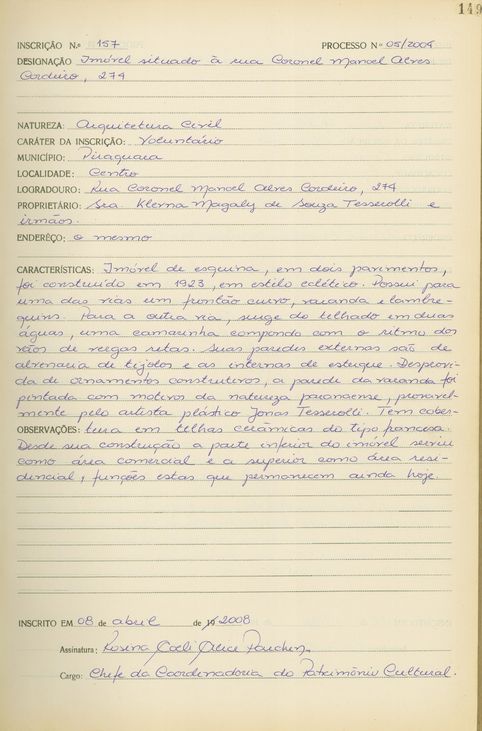 149
INSCRIÇÃO N.º 157 PROCESSO Nº 05/2004
DESIGNAÇÃO Imóvel situado à rua Coronel Manoel Alves
Cordeiro, 274
NATUREZA: Arquitetura Civil
CARÁTER DA INSCRIÇÃO: Voluntário
MUNICÍPIO: Piraquara
LOCALIDADE: Centro
LOGRADOURO: Rua Coronel Manoel Alves Cordeiro, 274
PROPRIETÁRIO: Sra. Klerna Magaly de Souza Tesserolli e
irmãos.
ENDERÊÇO: o mesmo
CARACTERÍSTICAS: Imóvel de esquina, em dois pavimentos,
foi construído em 1923, em estilo eclético. Possui para
uma das vias um frontão curvo, varanda e lambre-
quins. Para a outra via, surge do telhado em duas
águas, uma camarinha compondo com o ritmo dos
vãos de vergas retas. Suas paredes externas são de
alvenaria de tijolos e as internas de estuque. Desprovi-
da de ornamentos construtivos, a parede da varanda foi
pintada com motivos da natureza paranaense, provavel-
mente pelo artista plástico Jonas Tesserolli. Tem cober-
OBSERVAÇÕES: tura em telhas cerâmicas do tipo francesa.
Desde sua construção a parte inferior do imóvel serviu
como área comercial e a superior como área resi-
dencial, funções estas que permanecem ainda hoje.
INSCRITO EM 08 de abril de 19 2008
Assinatura: Rosina Coeli Alice Parchen
Cargo: Chefe da Coordenadoria do Patrimônio Cultural.